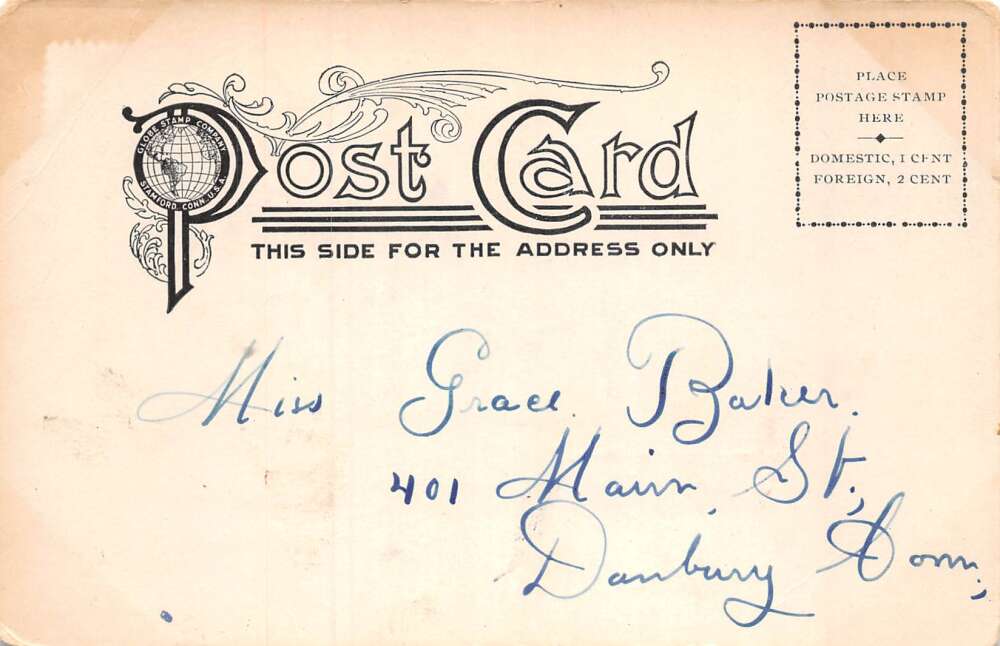 PLACE
POSTAGE STAMP
HERE
DOMESTIC, 1 CENT
FOREIGN, 2 CENT
GLOBE STAMP COMPANY
STAMFORD, CONN., U.S.A.
Post Card
THIS SIDE FOR THE ADDRESS ONLY
Miss Grace Baker.
401 Main St.,
Danbury Conn.,